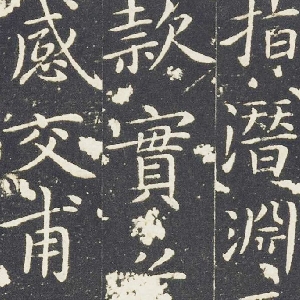 指潛淵
款實
感交甫